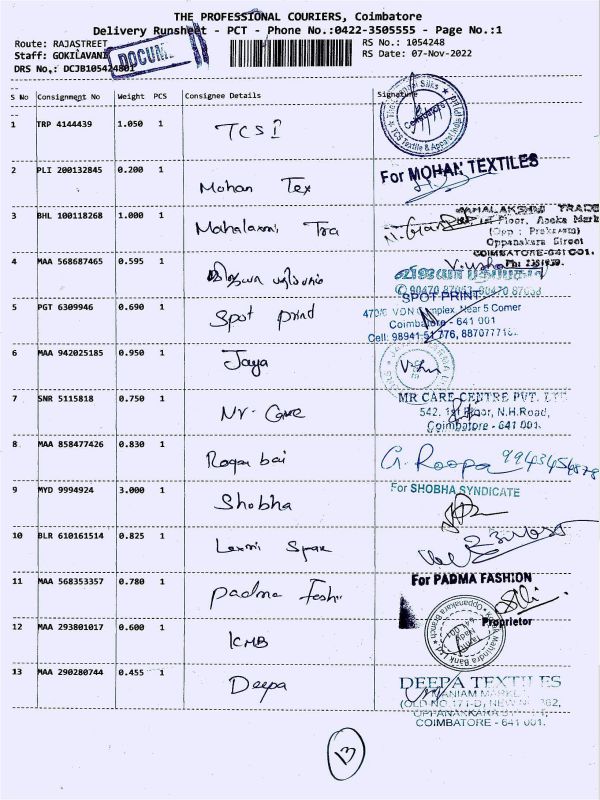 THE PROFESSIONAL COURIERS, Coimbatore
Delivery Runsheet - PCT - Phone No.:0422-3505555 - Page No.:1
Route: RAJASTREET
RS No.: 1054248
Staff: GOKILAVANI
DOCUM
RS Date: 07-Nov-2022
DRS No,: DCJB105424801
S No Consignment No Weight PCS Consignee Details Signature
1 TRP 4144439 1.050 1 TCSI
Coimbatore
TCS Textile & Apparel
2 PLI 200132845 0.200 1 Mohan Tex
For MOHAN TEXTILES
3 BHL 100118268 1.000 1 Mahalaxmi Tra
Floor, Asoka Mark
(Opp : Prakasam)
Oppanakara Street
COIMBATORE-641 001.
4 MAA 568687465 0.595 1
5 PGT 6309946 0.690 1 Spot Print
SPOT PRINT
470/6 VDN Complex, Near 5 Corner
Coimbatore - 641 001
Cell: 98941-51776,
6 MAA 942025185 0.950 1 Jaya
7 SNR 5115818 0.750 1 Mr. Care
MR CARE CENTRE PVT. LTD
542, 1st Floor, N.H.Road,
Coimbatore - 641 001.
8 MAA 858477426 0.830 1 Rogan bai
G. Roopa
9 MYD 9994924 3.000 1 Shobha
For SHOBHA SYNDICATE
10 BLR 610161514 0.825 1 Laxmi Spar
11 MAA 568353357 0.780 1 Padma Fashi
For PADMA FASHION
Proprietor
12 MAA 293801017 0.600 1 KMB
Mahindra Bank Ltd
Oppanakara Branch
13 MAA 290280744 0.455 1 Deepa
DEEPA TEXTILES
MANIAM MARKET
(OLD NO.171-D) NEW NO 362,
COIMBATORE - 641 001.
13